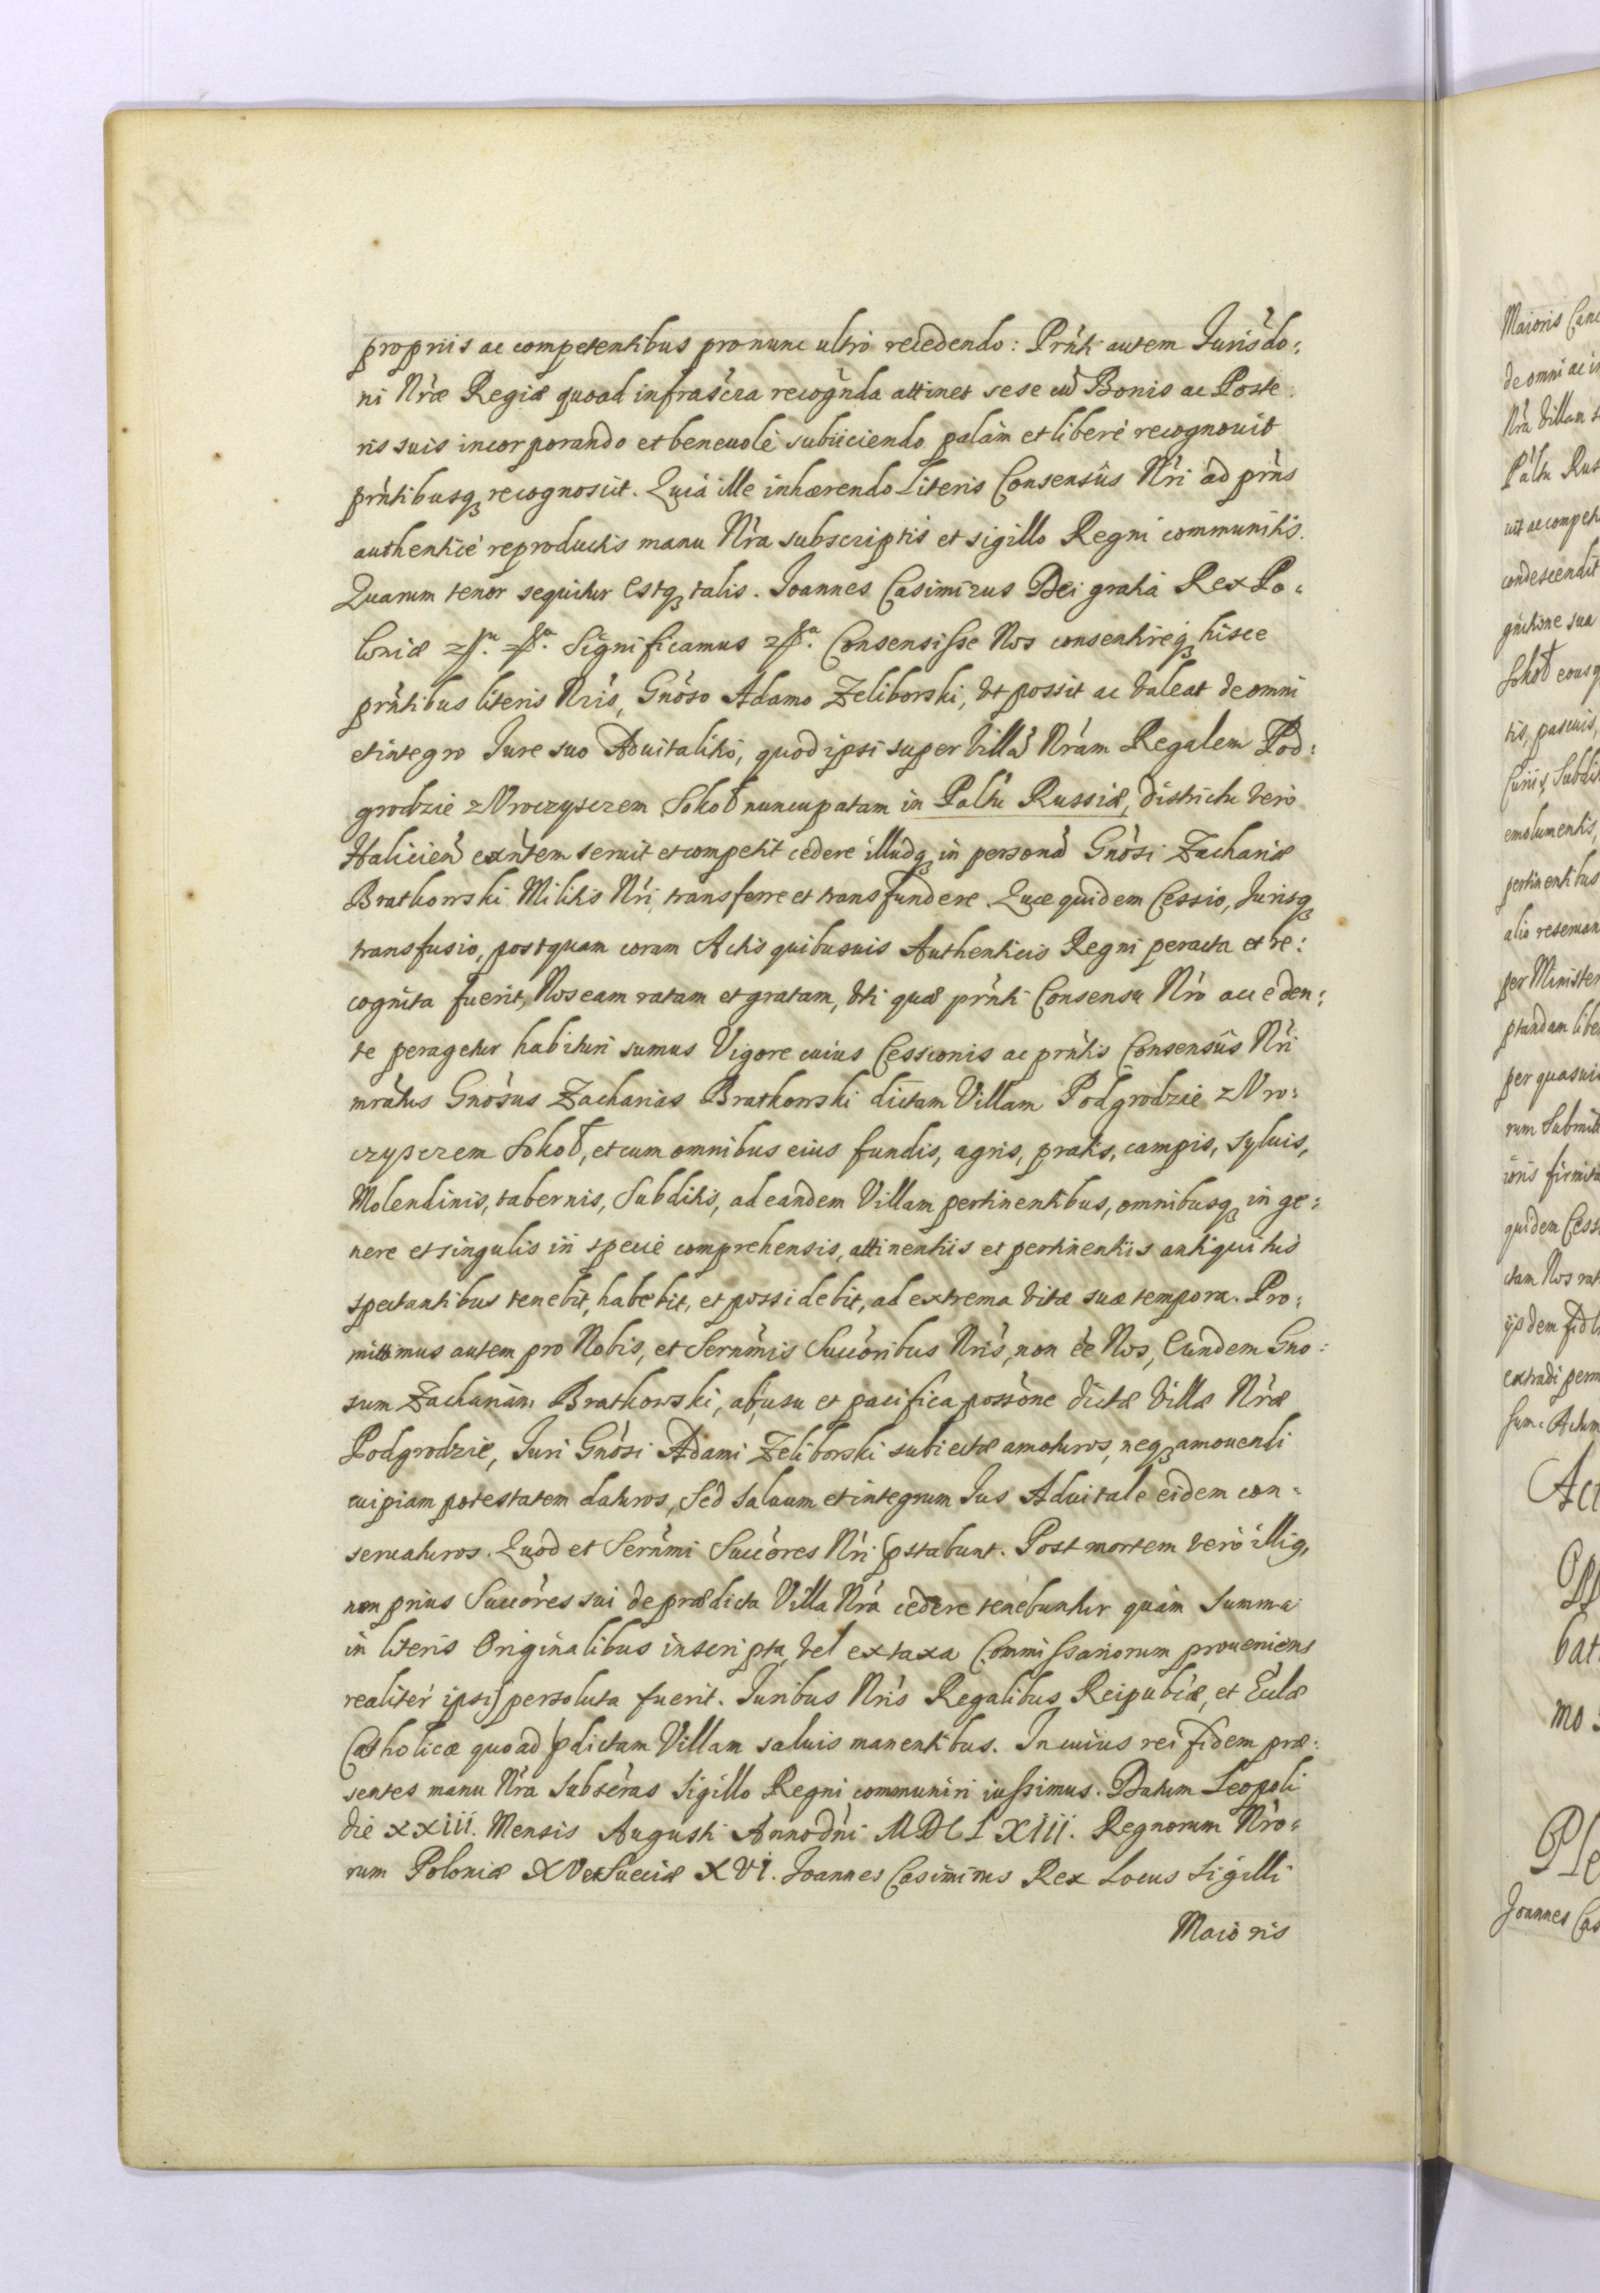 proprijs ac competentibus pronunc ultrò recedendo: Prńti autem Jurisdo:
ni Nræ Regiæ quoad infrascra recognda attinet sese cũ Bonis ac Poste
ris suis incorporando et beneuolè subijciendo palàm et liberè recognouit
prńtibusq recognoscit. Quià ille inhærendo Literis Consensûs Nri ad prńs
authenticè reproductis manu Nra subscriptis et sigillo Regni communitis.
Quarum tenor sequitur estq talis. Joannes Casimirus Dei gratia Rex Po=
loniæ Significamus Consensisse Nos consentireq hisce
prńtibus literis Nris, Gnoso Adamo Zeliborski, vt possit ac valeat de omni
et integro Jure suo Aduitalitio, quod ipsi super Villã Nram Regalem Pod:
grodzie z Vroczyszczem Sokoł nuncupatam in Paltu Russiæ, districtu verò
Halicień exńtem seruit et competit cedere illudq in personã Gnosi Zachariæ
Bratkowski Militis Nri, transferre et transfundere. Quæ quidem Cessio, Jurisq
transfusio, postquam coram Actis quibusuis Authenticis Regni peracta et re:
cognita fuerit, Nos eam ratam et gratam, vti quæ prńti Consensu Nro acceden:
te peragetur habituri sumus Vigore cuius Cessionis ac prńtis Consensûs Nri
mratus Gnosus Zacharias Bratkowski dictam Villam Podgrodzie z Vro:
czyszczem Sokoł, et cum omnibus eius fundis, agris, pratis, campis, syluis,
Molendinis, tabernis, Subditis, ad eandem Villam pertinentibus, omnibusq in ge:
nere et singulis in specie comprehensis, attinentijs et pertinentijs antiquitus
spectantibus tenebit, habebit, et possidebit, ad extrema vitæ suæ tempora. Pro:
mittimus autem pro Nobis, et Sernmis Succoribus Nris, non èe Nos, Eundem Gno:
sum Zachariam Bratkowski, ab usu et pacifica possone dictæ Villæ Nræ
Podgrodzie, Juri Gnosi Adami Zeliborski subiectæ amoturos, neq amouendi
cuipiam potestatem daturos, Sed saluum et integrum Jus Aduitale eidem con=
seruaturos. Quod et Sernmi Succores Nri pstabunt. Post mortem verò illiq,
non prius Succores sui de prædicta Villa Nra cedere tenebuntur quàm summa
in literis Originalibus inscripta, vel ex taxa Commissariorum proueniens
realitèr ipsis persoluta fuerit. Juribus Nris Regalibus Reipubcæ, et Ecclæ
Catholicæ quoad pdictam Villam saluis manentibus. In cuius rei fidem præ:
sentes manu Nra subscras Sigillo Regni communiri iussimus. Datum Leopoli
die XXIII. Mensis Augusti Anno dni MDCLXIII. Regnorum Nro=
rum Poloniæ XV et Sueciæ XVI. Joannes Casimirus Rex Locus Sigilli
Maioris
Maioris
de omni ac
Nra Villam
Paltu Rus
uit ac compet
condescendit
Sokoł
tis, pascuis,
emolumentis,
pertinentibus
per Minister
per quasuis
quidem Cess
Joannes Cas